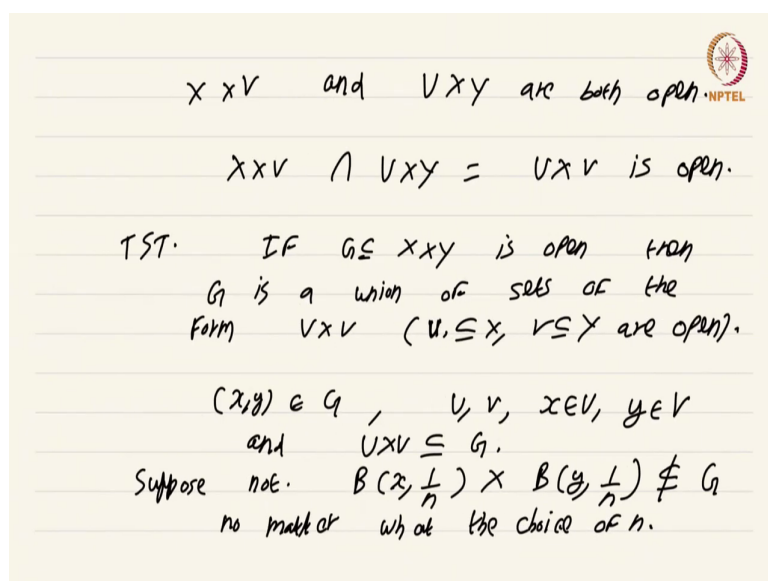 X x V and U x Y are both open.
NPTEL
X x V ∩ U x Y = U x V is open.
TST. IF G ⊆ X x Y is open then
G is a union of sets of the
Form U x V (U ⊆ X, V ⊆ Y are open).
(x,y) ∈ G , U, V, x ∈ U, y ∈ V
and U x V ⊆ G.
Suppose not. B(x, 1/n) x B(y, 1/n) ⊈ G
no matter what the choice of n.